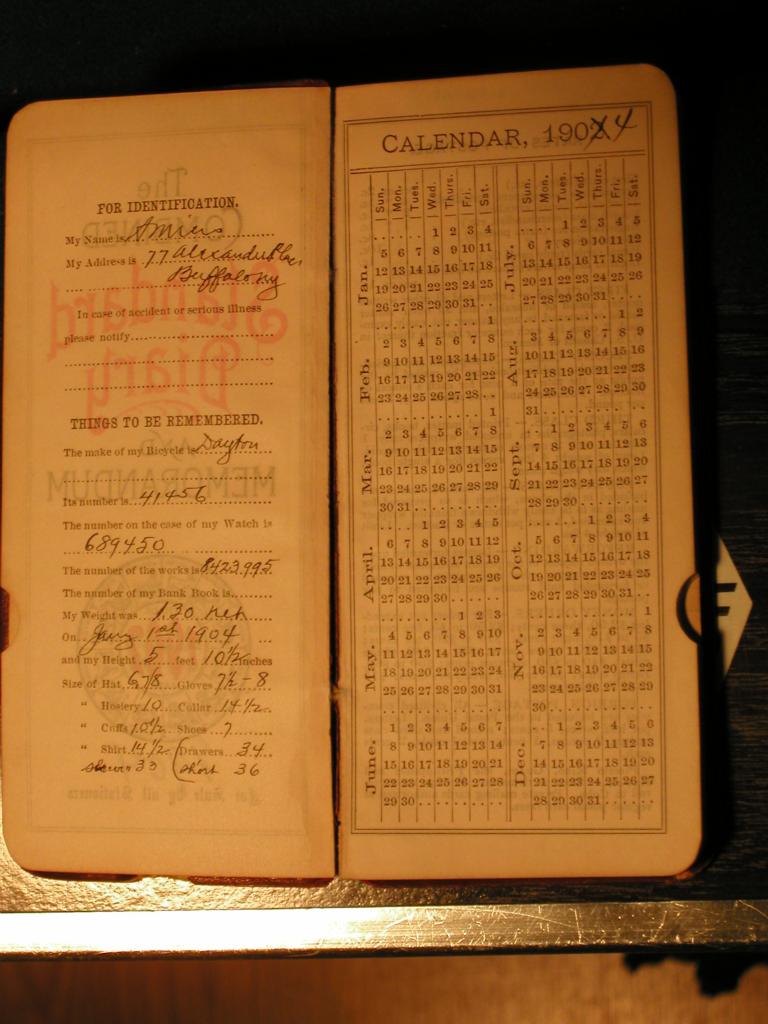 FOR IDENTIFICATION.
My Name is
My Address is 77 Alexander Place
Buffalo NY
In case of accident or serious illness
please notify
THINGS TO BE REMEMBERED.
The make of my Bicycle is Dayton
Its number is 41456
The number on the case of my Watch is
689450
The number of the works is 8423995
The number of my Bank Book is
My Weight was 130
On Jany 1st 1904
and my Height 5 feet 10 1/2 inches
Size of Hat 6 7/8 Gloves 7 1/2 - 8
" Hosiery 10 Collar 14 1/2
" Cuffs 10 1/2 Shoes 7
" Shirt 14 1/2 Drawers 34
sleeves 33 Short 36
CALENDAR, 1902 4
Sun. Mon. Tues. Wed. Thurs. Fri. Sat.
Jan.
1 2 3 4
5 6 7 8 9 10 11
12 13 14 15 16 17 18
19 20 21 22 23 24 25
26 27 28 29 30 31
Feb.
1
2 3 4 5 6 7 8
9 10 11 12 13 14 15
16 17 18 19 20 21 22
23 24 25 26 27 28
Mar.
1
2 3 4 5 6 7 8
9 10 11 12 13 14 15
16 17 18 19 20 21 22
23 24 25 26 27 28 29
30 31
April.
1 2 3 4 5
6 7 8 9 10 11 12
13 14 15 16 17 18 19
20 21 22 23 24 25 26
27 28 29 30
May.
1 2 3
4 5 6 7 8 9 10
11 12 13 14 15 16 17
18 19 20 21 22 23 24
25 26 27 28 29 30 31
June.
1 2 3 4 5 6 7
8 9 10 11 12 13 14
15 16 17 18 19 20 21
22 23 24 25 26 27 28
29 30
Sun. Mon. Tues. Wed. Thurs. Fri. Sat.
July.
1 2 3 4 5
6 7 8 9 10 11 12
13 14 15 16 17 18 19
20 21 22 23 24 25 26
27 28 29 30 31
Aug.
1 2
3 4 5 6 7 8 9
10 11 12 13 14 15 16
17 18 19 20 21 22 23
24 25 26 27 28 29 30
31
Sept.
1 2 3 4 5 6
7 8 9 10 11 12 13
14 15 16 17 18 19 20
21 22 23 24 25 26 27
28 29 30
Oct.
1 2 3 4
5 6 7 8 9 10 11
12 13 14 15 16 17 18
19 20 21 22 23 24 25
26 27 28 29 30 31
Nov.
1
2 3 4 5 6 7 8
9 10 11 12 13 14 15
16 17 18 19 20 21 22
23 24 25 26 27 28 29
30
Dec.
1 2 3 4 5 6
7 8 9 10 11 12 13
14 15 16 17 18 19 20
21 22 23 24 25 26 27
28 29 30 31